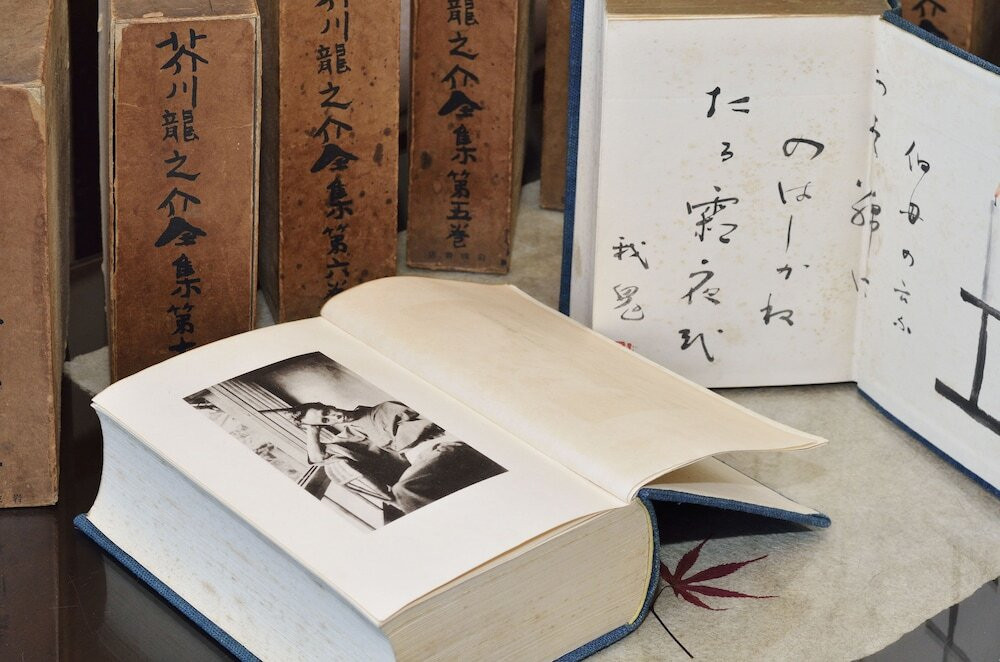 伯母の云ふ
うす綿は
のはしかね
たる霜夜哉
我鬼
龍之介全集第五巻
龍之介全集第六巻
芥川龍之介全集第